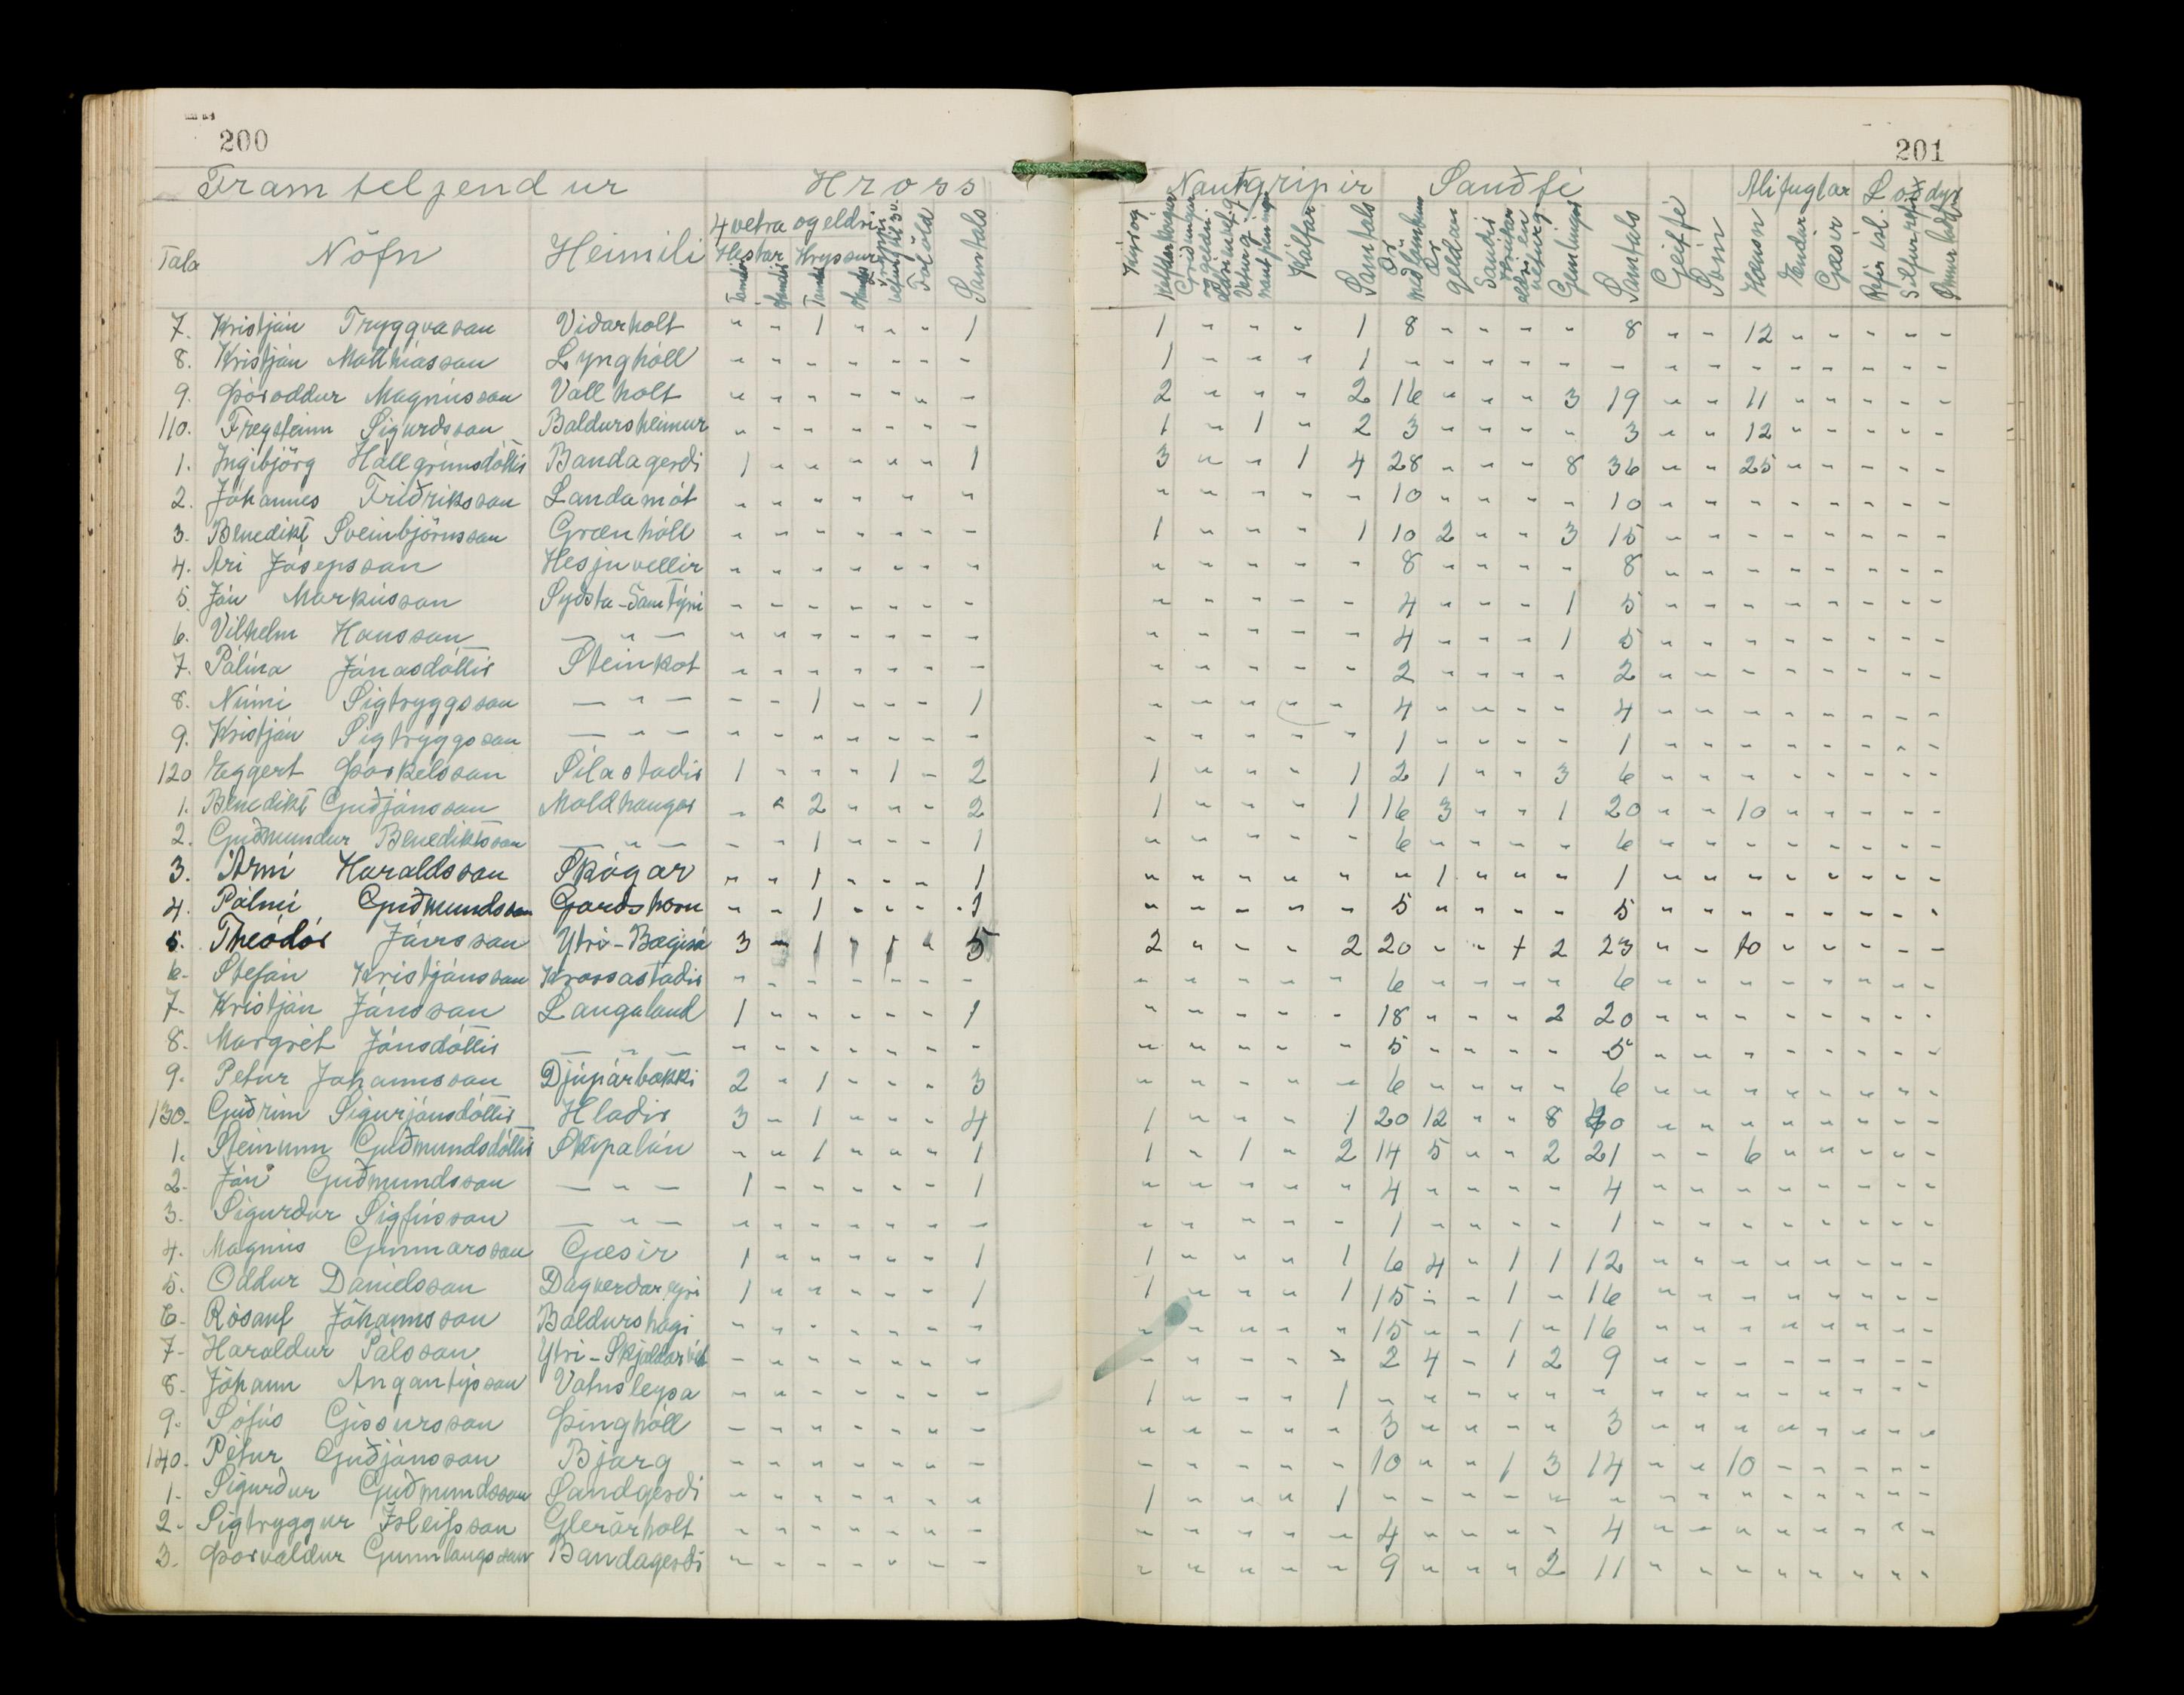 200
201
Framteljendur Hross Nautgripir Sauðfé Alifuglar Loðdýr
4 vetra og eldri
Tala Nöfn Heimili Hestar Hryssur Folöld Samtals Kálfar Samtals Ær með lömbum Ær geldar Sauðir Gemlingar Samtals Geitfé Svín Hænsn Endur Gæsir
7. Kristján Tryggvason Viðarholt " " 1 " " " 1 1 " " " 1 8 " " " " 8 " " 12 " " " " "
8. Kristján Matthiasson Lynghóll " " " " " " " 1 " " " 1 " " " " " " " " " " " " " "
9. Þóroddur Magnússon Vallholt " " " " " " " 2 " " " 2 16 " " " 3 19 " " 11 " " " " "
110. Freysteinn Sigurdsson Baldursheimur " " " " " " " 1 " 1 " 2 3 " " " " 3 " " 12 " " " " "
1. Ingibjörg Hallgrímsdóttir Bandagerdi 1 " " " " " 1 3 " " 1 4 28 " " " 8 36 " " 25 " " " " "
2. Jóhannes Friðriksson Landamót " " " " " " " " " " " " 10 " " " " 10 " " " " " " " "
3. Benedikt Sveinbjörnsson Grænhóll " " " " " " " 1 " " " 1 10 2 " " 3 15 " " " " " " " "
4. Ari Jósepsson Hesjuvellir " " " " " " " " " " " " 8 " " " " 8 " " " " " " " "
5. Jón Markússon Syðsta-Samtýni " " " " " " " " " " " " 4 " " " 1 5 " " " " " " " "
6. Vilhelm Hansson — " — " " " " " " " " " " " " 4 " " " 1 5 " " " " " " " "
7. Pálína Jónasdóttir Steinkot " " " " " " " " " " " " 2 " " " " 2 " " " " " " " "
8. Númi Sigtryggsson — " — " " 1 " " " 1 " " " " " 4 " " " " 4 " " " " " " " "
9. Kristján Sigtryggsson — " — " " " " " " " " " " " " 1 " " " " 1 " " " " " " " "
120 Eggert Þorkelsson Sílastadir 1 " " " 1 " 2 1 " " " 1 2 1 " " 3 6 " " " " " " " "
1. Benedikt Guðjónsson Moldhaugar " " 2 " " " 2 1 " " " 1 16 3 " " 1 20 " " 10 " " " " "
2. Guðmundur Benediktsson — " — " " 1 " " " 1 " " " " " 6 " " " " 6 " " " " " " " "
3. Árni Haraldsson Skógar " " 1 " " " 1 " " " " " " 1 " " " 1 " " " " " " " "
4. Pálmi Guðmundsson Garðshorn " " 1 " " " 1 " " " " " 5 " " " " 5 " " " " " " " "
5. Theódór Jónsson Ytri-Bægisá 3 " 1 1 1 " 5 2 " " " 2 20 " " 1 2 23 " " 10 " " " " "
6. Stefán Kristjánsson Krossastadir " " " " " " " " " " " " 6 " " " " 6 " " " " " " " "
7. Kristján Jónsson Langaland 1 " " " " " 1 " " " " " 18 " " " 2 20 " " " " " " " "
8. Margrét Jónsdóttir — " — " " " " " " " " " " " " 5 " " " " 5 " " " " " " " "
9. Petur Jóhannsson Djúpárbakki 2 " 1 " " " 3 " " " " " 6 " " " " 6 " " " " " " " "
130. Guðrún Sigurjónsdóttir Hladir 3 " 1 " " " 4 1 " " " 1 20 12 " " 8 40 " " " " " " " "
1. Steinunn Guðmundsdóttir Skipalón " " 1 " " " 1 1 " 1 " 2 14 5 " " 2 21 " " 6 " " " " "
2. Jón Guðmundsson — " — 1 " " " " " 1 " " " " " 4 " " " " 4 " " " " " " " "
3. Sigurdur Sigfússon — " — " " " " " " " " " " " " 1 " " " " 1 " " " " " " " "
4. Magnús Gunnarsson Gæsir 1 " " " " " 1 1 " " " 1 6 4 " 1 1 12 " " " " " " " "
5. Oddur Daníelsson Dagverdareyri 1 " " " " " 1 1 " " " 1 15 " " 1 " 16 " " " " " " " "
6. Rósant Jóhannsson Baldurshagi " " " " " " " " " " " " 15 " " 1 " 16 " " " " " " " "
7. Haraldur Pálsson Ytri-Skjaldarvík " " " " " " " " " " " " 2 4 " 1 2 9 " " " " " " " "
8. Jóhann Angantýsson Vatnsleysa " " " " " " " 1 " " " 1 " " " " " " " " " " " " " "
9. Sófús Gissursson Þinghóll " " " " " " " " " " " " 3 " " " " 3 " " " " " " " "
140. Pétur Guðjónsson Bjarg " " " " " " " " " " " " 10 " " 1 3 14 " " 10 " " " " "
1. Sigurður Guðmundsson Sandgerði " " " " " " " 1 " " " 1 " " " " " " " " " " " " " "
2. Sigtryggur Ísleifsson Glerárholt " " " " " " " " " " " " 4 " " " " 4 " " " " " " " "
3. Þorvaldur Gunnlaugsson Bandagerði " " " " " " " " " " " " 9 " " " 2 11 " " " " " " " "